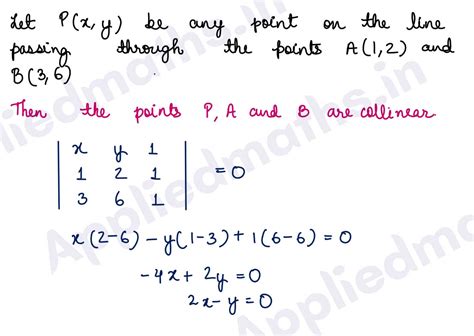 Let P(x, y) be any point on the line
passing through the points A(1,2) and
B(3,6)
Then the points P, A and B are collinear
| x y 1 |
| 1 2 1 | = 0
| 3 6 1 |
x(2-6) - y(1-3) + 1(6-6) = 0
-4x + 2y = 0
2x - y = 0
Appliedmaths.in
Appliedmaths.in
Appliedmaths.in